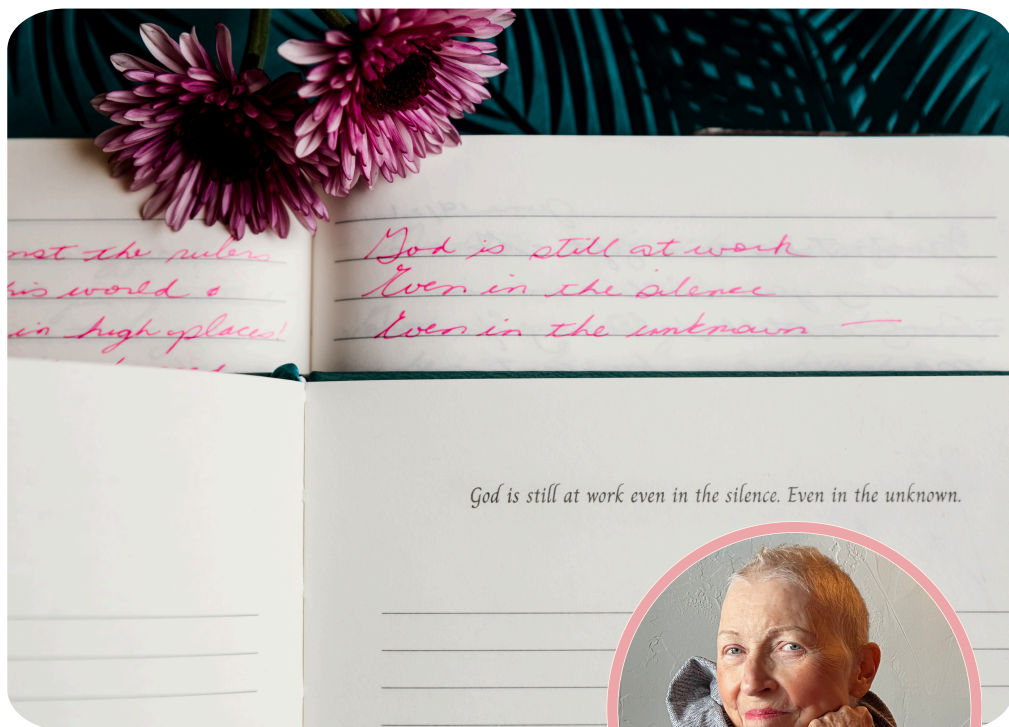 nst the rulers
his world
in high places!
God is still at work
Even in the silence
Even in the unknown —
God is still at work even in the silence. Even in the unknown.